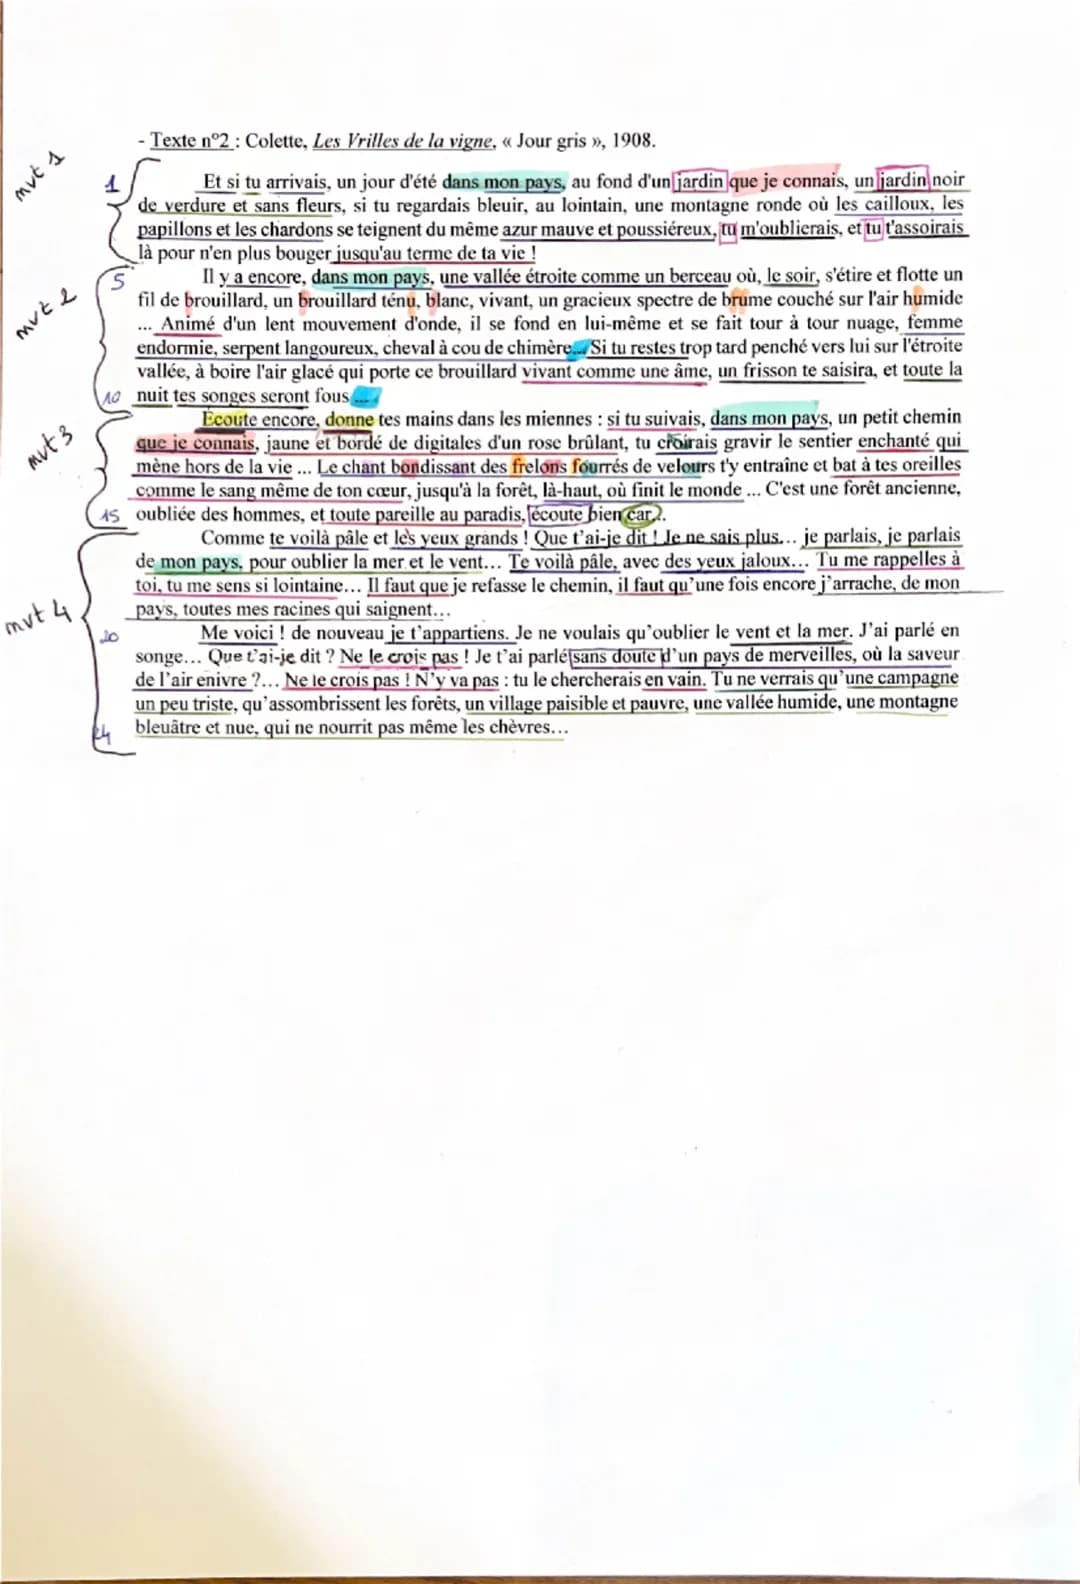 - Texte n°2 : Colette, Les Vrilles de la vigne, « Jour gris », 1908.
mvt 1
1
Et si tu arrivais, un jour d'été dans mon pays, au fond d'un jardin que je connais, un jardin noir
de verdure et sans fleurs, si tu regardais bleuir, au lointain, une montagne ronde où les cailloux, les
papillons et les chardons se teignent du même azur mauve et poussiéreux, tu m'oublierais, et tu t'assoirais
là pour n'en plus bouger jusqu'au terme de ta vie !
mvt 2
5
Il y a encore, dans mon pays, une vallée étroite comme un berceau où, le soir, s'étire et flotte un
fil de brouillard, un brouillard ténu, blanc, vivant, un gracieux spectre de brume couché sur l'air humide
... Animé d'un lent mouvement d'onde, il se fond en lui-même et se fait tour à tour nuage, femme
endormie, serpent langoureux, cheval à cou de chimère... Si tu restes trop tard penché vers lui sur l'étroite
vallée, à boire l'air glacé qui porte ce brouillard vivant comme une âme, un frisson te saisira, et toute la
10
nuit tes songes seront fous ...
mvt 3
Ecoute encore, donne tes mains dans les miennes : si tu suivais, dans mon pays, un petit chemin
que je connais, jaune et bordé de digitales d'un rose brûlant, tu croirais gravir le sentier enchanté qui
mène hors de la vie ... Le chant bondissant des frelons fourrés de velours t'y entraîne et bat à tes oreilles
comme le sang même de ton cœur, jusqu'à la forêt, là-haut, où finit le monde ... C'est une forêt ancienne,
15
oubliée des hommes, et toute pareille au paradis, écoute bien car...
mvt 4
Comme te voilà pâle et les yeux grands ! Que t'ai-je dit ! Je ne sais plus... je parlais, je parlais
de mon pays, pour oublier la mer et le vent... Te voilà pâle, avec des yeux jaloux... Tu me rappelles à
toi, tu me sens si lointaine... Il faut que je refasse le chemin, il faut qu'une fois encore j'arrache, de mon
pays, toutes mes racines qui saignent...
20
Me voici ! de nouveau je t'appartiens. Je ne voulais qu'oublier le vent et la mer. J'ai parlé en
songe... Que t'ai-je dit ? Ne le crois pas ! Je t'ai parlé sans doute d'un pays de merveilles, où la saveur
de l'air enivre ?... Ne le crois pas ! N'y va pas : tu le chercherais en vain. Tu ne verrais qu'une campagne
un peu triste, qu'assombrissent les forêts, un village paisible et pauvre, une vallée humide, une montagne
24
bleuâtre et nue, qui ne nourrit pas même les chèvres...